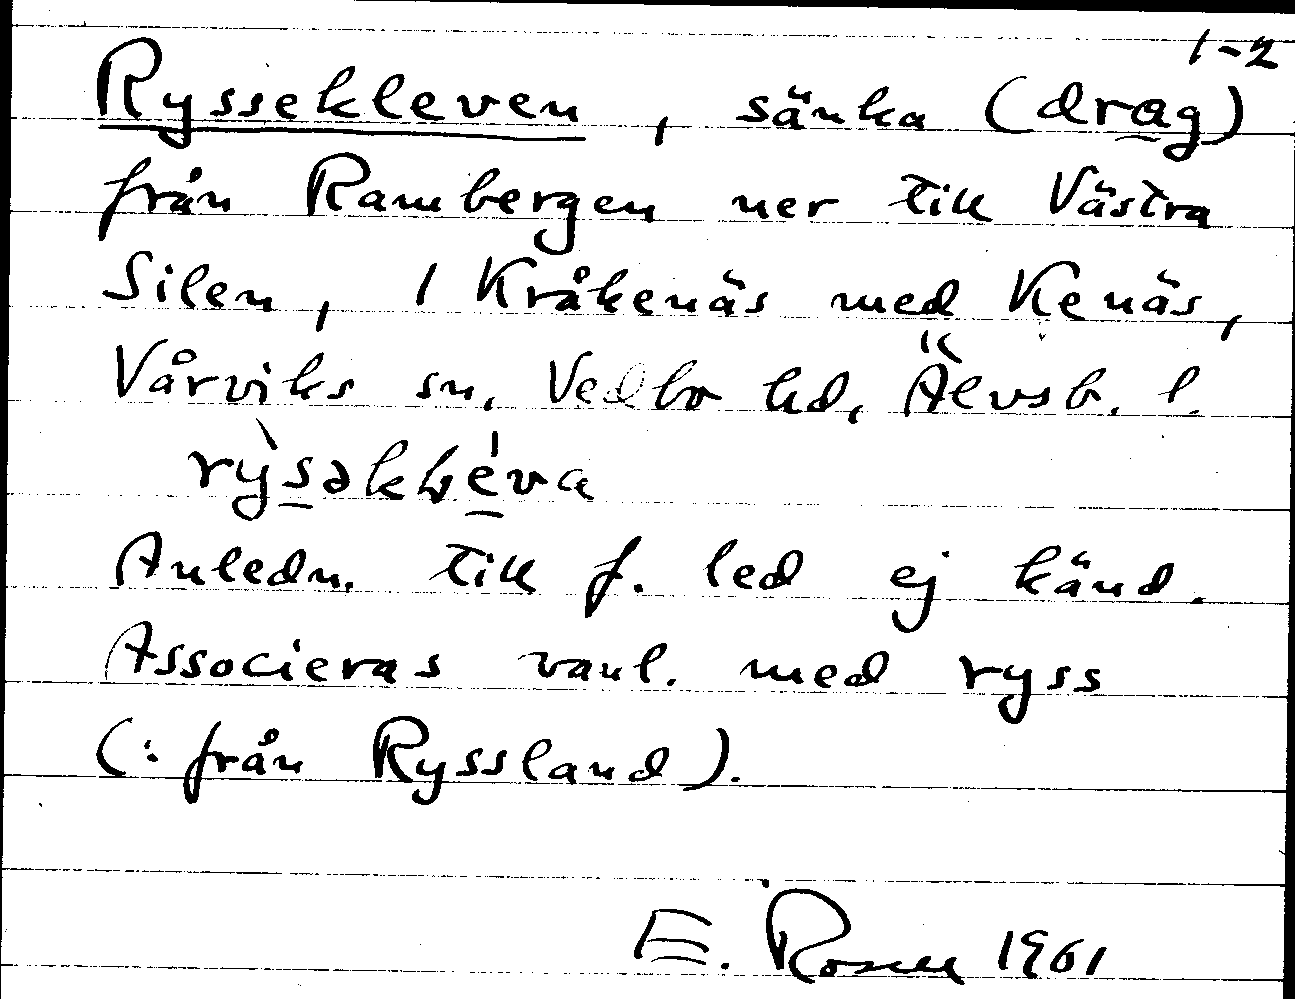 1-2
Ryssekleven, sänka (drag)
från Rambergen ner till Västra
Silen, 1 Kråkenäs med Kenäs,
Vårviks sn, Vedbo hd, Älvsb. l.
Anledn. till f. led ej känd.
Associeras vanl. med ryss
(: från Ryssland).
E. Rosen 1961